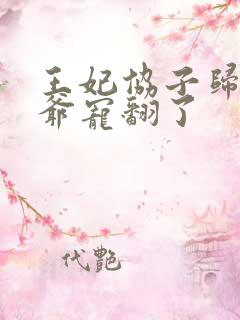 王妃協子歸
爺寵翻了
代艷